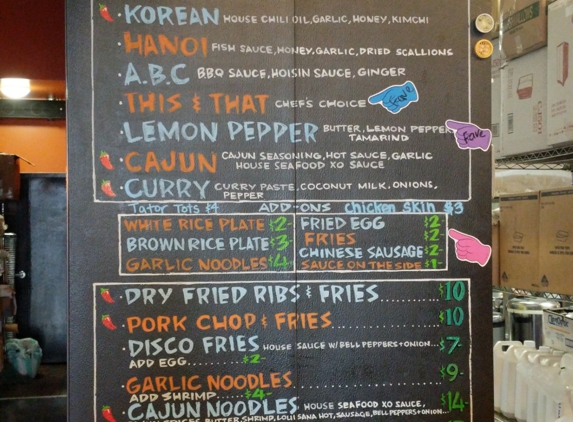 KOREAN HOUSE CHILI OIL, GARLIC, HONEY, KIMCHI
HANOI FISH SAUCE, HONEY, GARLIC, DRIED SCALLIONS
A.B.C B.B.Q SAUCE, HOISIN SAUCE, GINGER
THIS & THAT CHEF'S CHOICE
Fave
LEMON PEPPER BUTTER, LEMON PEPPER
TAMARIND
fave
CAJUN CAJUN SEASONING, HOT SAUCE, GARLIC
HOUSE SEAFOOD XO SAUCE
CURRY CURRY PASTE, COCONUT MILK, ONIONS,
PEPPER
Tator Tots $4 ADD-ONS Chicken Skin $3
WHITE RICE PLATE $2-
BROWN RICE PLATE $3-
GARLIC NOODLES $4-
FRIED EGG $2-
FRIES $2-
CHINESE SAUSAGE $2-
SAUCE ON THE SIDE $1-
DRY FRIED RIBS & FRIES........ $10
PORK CHOP & FRIES............ $10
DISCO FRIES HOUSE SAUCE W/ BELL PEPPERS+ONION... $7-
ADD EGG.......$2-
GARLIC NOODLES............ $9-
ADD SHRIMP....$4-
CAJUN NOODLES HOUSE SEAFOOD XO SAUCE, $14-
BUTTER, SHRIMP, LOUISIANA HOT, SAUSAGE, BELL PEPPERS+ONION...